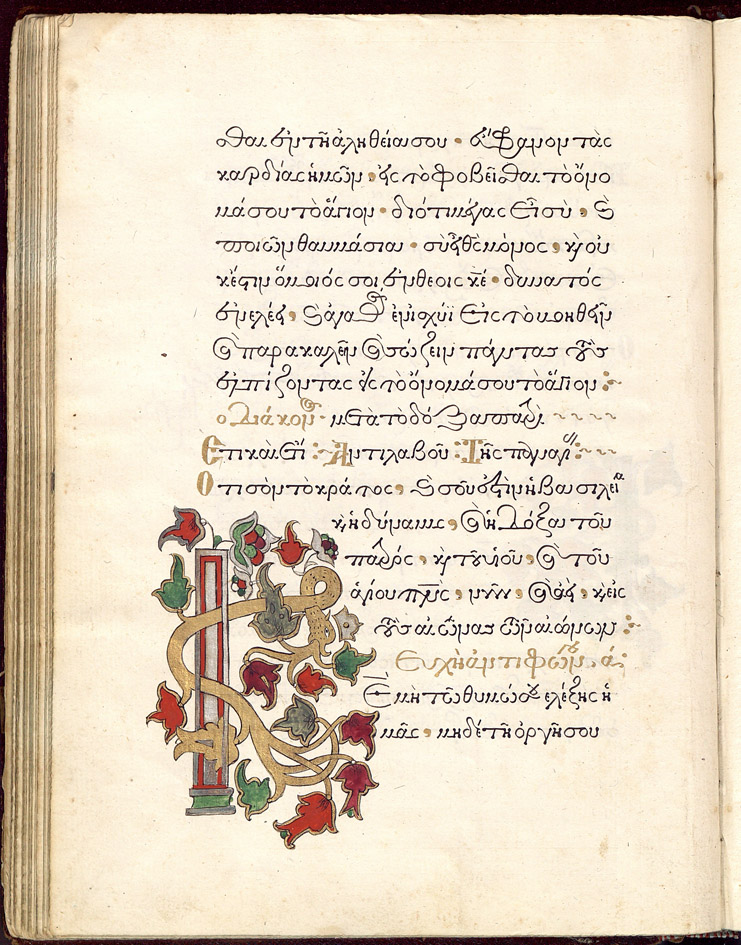 σθαι ἐν τῆ ἀληθεία σου · εὔφρανον τὰς
καρδίας ἡμῶν, εἰς τὸ φοβεῖσθαι τὸ ὄνο
μά σου τὸ ἅγιον · διότι μέγας εἶ σὺ, καὶ
ποιῶν θαυμάσια · σὺ εἶ θεὸς μόνος, καὶ οὐ
κ ἔστιν ὅμοιός σοι ἐν θεοῖς κε · δυνατὸς
ἐν ἐλέει, καὶ ἀγαθὸς ἐν ἰσχύϊ εἰς τὸ βοηθεῖν
καὶ παρακαλεῖν καὶ σώζειν πάντας τοὺς
ἐλπίζοντας εἰς τὸ ὄνομά σου τὸ ἅγιον :
ὁ διάκον · μετὰ τὸ δόξα πατρὶ
Ἔτι καὶ ἔτι : Ἀντιλαβοῦ : Τῆς παναγ :
Ὅτι σὸν τὸ κράτος, καὶ σοῦ ἐστιν ἡ βασιλεία
καὶ ἡ δύναμις, καὶ ἡ δόξα τοῦ
πατρός, καὶ τοῦ υἱοῦ, καὶ τοῦ
ἁγίου πνς, νῦν, καὶ ἀεὶ, καὶ εἰς
τοὺς αἰῶνας τῶν αἰώνων :
Εὐχὴ ἀντιφώνου α
Κε μὴ τῶ θυμῶ σου ἐλέξης ἡ
μᾶς, μηδὲ τῆ ὀργῆ σου